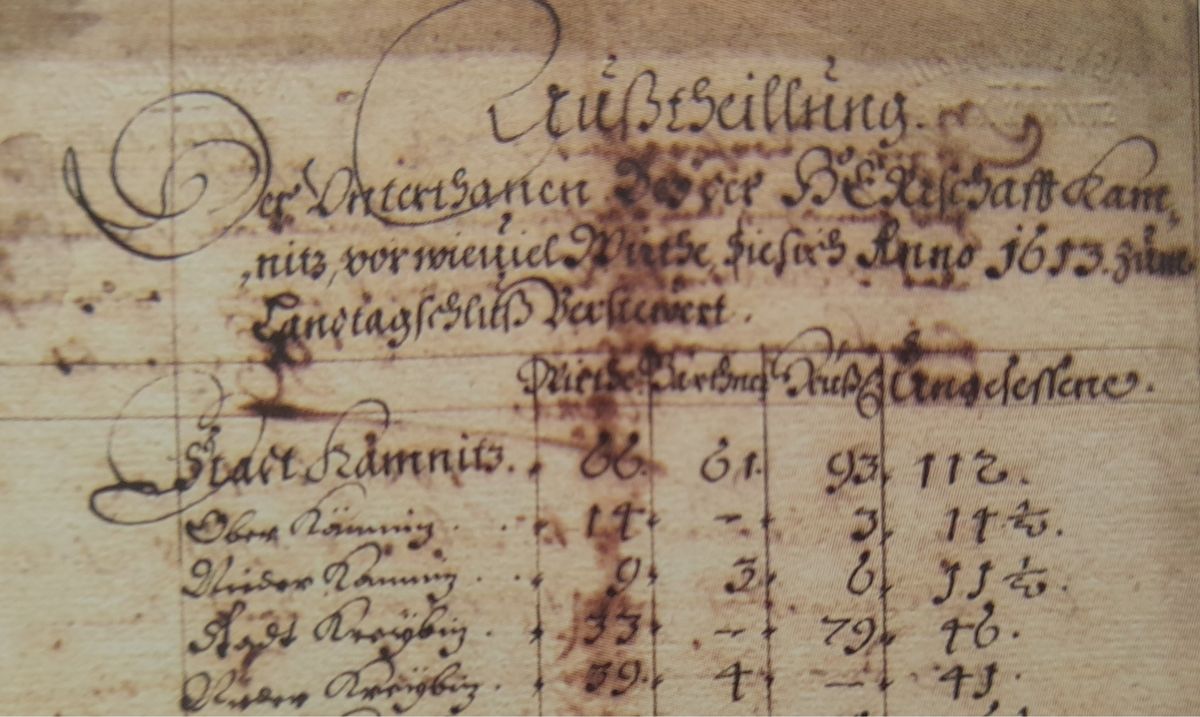 Außtheillung.
Der Vnterthanen Bey der HERrschafft Kam,
,nitz, vor wieuiel Wirthe, sie sich Anno 1613. zum
Landtagschluß Versteuert.
Wirthe Gärthner Heußl Angesessene.
Stadt Kamnitz. 66. 61. 93. 112.
Ober Kamnitz 14 - 3. 14 ½.
Nieder Kamnitz 9 3 6. 11 ½.
Stadt Kreÿbitz 33 - 79. 46.
Nieder Kreÿbitz. 39. 4 - 41.